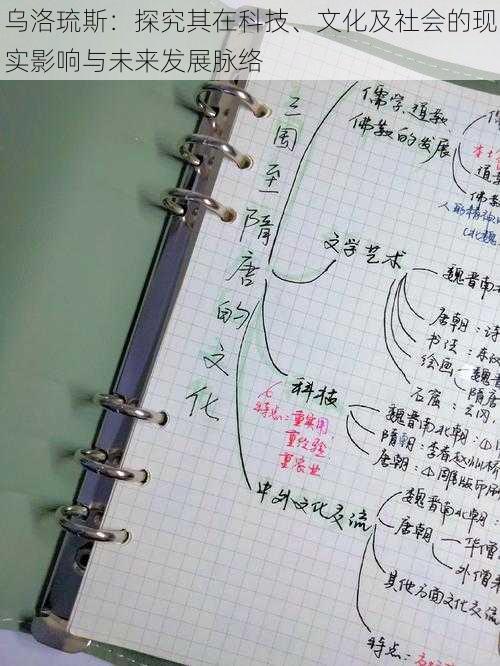 乌洛琉斯：探究其在科技、文化及社会的现
实影响与未来发展脉络
三国至隋唐的文化
儒学、道教、
佛教的发展
道教
佛教
人的精神
文学艺术
魏晋南北
唐朝：诗
书法：东
绘画
魏晋
隋唐
石窟：云冈
科技
特点：重实用
重经验
重农业
魏晋南北朝：①
隋朝：李春赵州桥
唐朝：①雕版印刷
中外文化交流
魏晋南北朝：
唐朝
华僧
外僧
其他方面文化交流
特点：